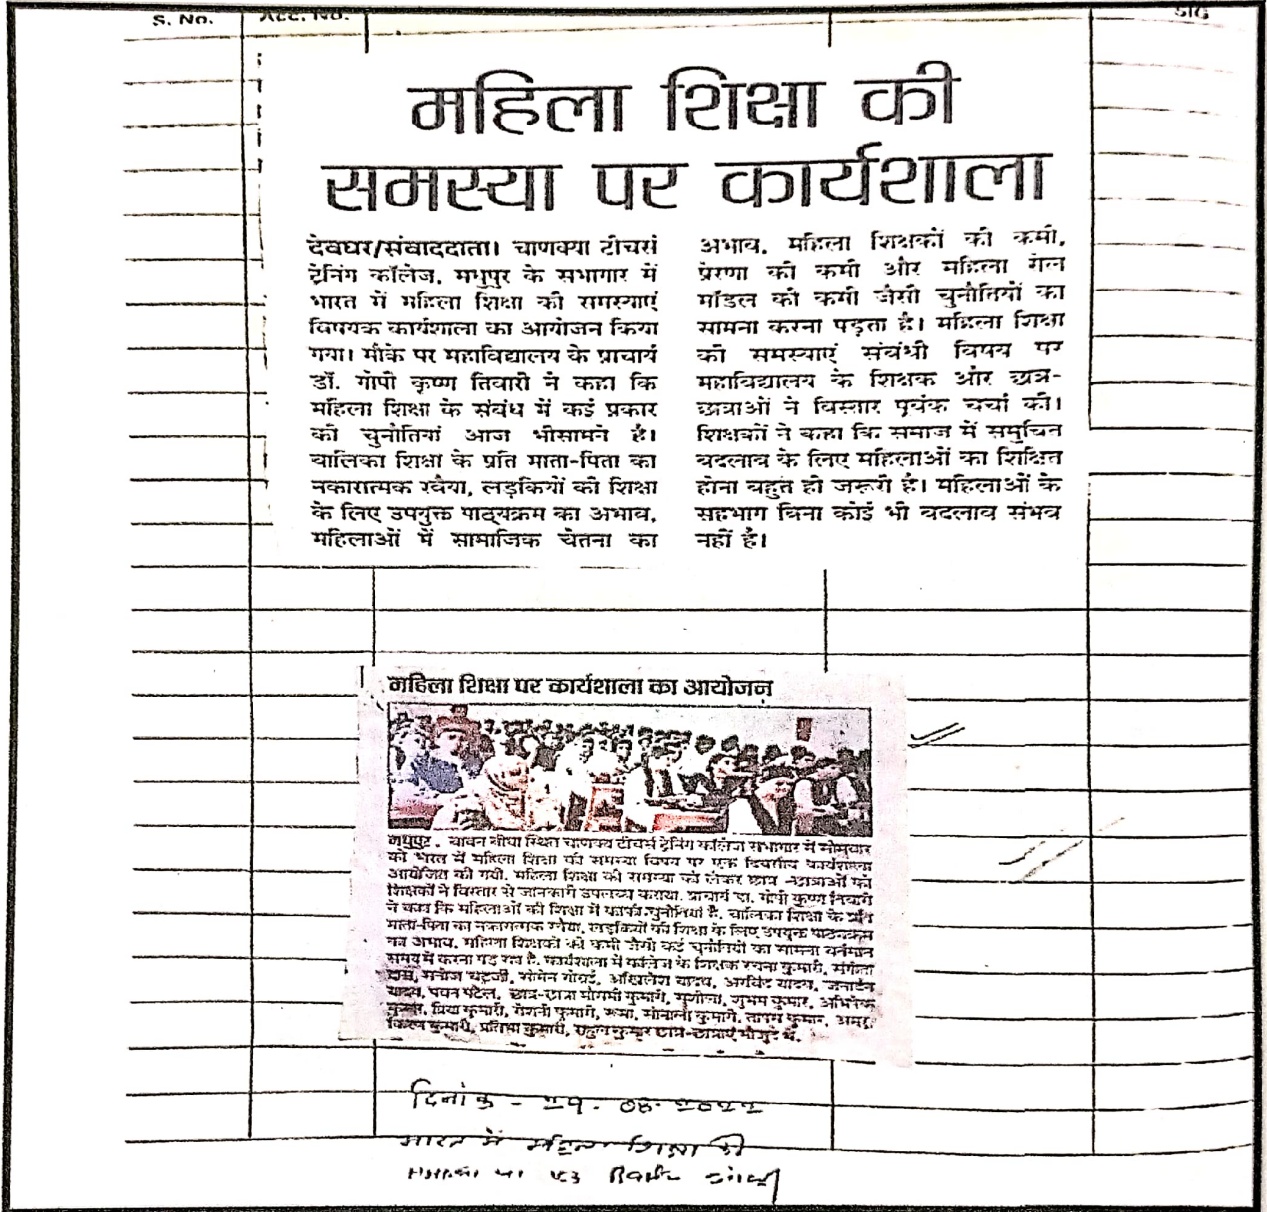 S. No.
Acc. No.
SIG
महिला शिक्षा की
समस्या पर कार्यशाला
देवघर/संवाददाता। चाणक्या टीचर्स
ट्रेनिंग कॉलेज, मधुपुर के सभागार में
भारत में महिला शिक्षा की समस्याएं
विषयक कार्यशाला का आयोजन किया
गया। मौके पर महाविद्यालय के प्राचार्य
डॉ. गोपी कृष्ण तिवारी ने कहा कि
महिला शिक्षा के संबंध में कई प्रकार
की चुनौतियां आज भीसामने है।
बालिका शिक्षा के प्रति माता-पिता का
नकारात्मक रवैया, लड़कियों की शिक्षा
के लिए उपयुक्त पाठ्यक्रम का अभाव,
महिलाओं में सामाजिक चेतना का
अभाव, महिला शिक्षकों की कमी,
प्रेरणा की कमी और महिला रोल
मॉडल की कमी जैसी चुनौतियों का
सामना करना पड़ता है। महिला शिक्षा
की समस्याएं संबंधी विषय पर
महाविद्यालय के शिक्षक और छात्र-
छात्राओं ने विस्तार पूर्वक चर्चा की।
शिक्षकों ने कहा कि समाज में समुचित
बदलाव के लिए महिलाओं का शिक्षित
होना बहुत ही जरूरी है। महिलाओं के
सहभाग बिना कोई भी बदलाव संभव
नहीं है।
महिला शिक्षा पर कार्यशाला का आयोजन
मधुपुर. बावन बीघा स्थित चाणक्य टीचर्स ट्रेनिंग कॉलेज सभागार में सोमवार
को भारत में महिला शिक्षा की समस्या विषय पर एक दिवसीय कार्यशाला
आयोजित की गयी. महिला शिक्षा की समस्या को लेकर छात्र -छात्राओं को
शिक्षकों ने विस्तार से जानकारी उपलब्ध कराया. प्राचार्य डा. गोपी कृष्ण तिवारी
ने कहा कि महिलाओं की शिक्षा में काफी चुनौतियां है. बालिका शिक्षा के प्रति
माता-पिता का नकारात्मक रवैया, लड़कियों की शिक्षा के लिए उपयुक्त पाठ्यक्रम
का अभाव, महिला शिक्षकों की कमी जैसी कई चुनौतियों का सामना वर्तमान
समय में करना पड़ रहा है. कार्यशाला में कॉलेज के शिक्षक रचना कुमारी, संगीता
दास, मनोज चटर्जी, अखिलेश यादव, अरविंद यादव, जनार्दन
यादव, पवन पटेल, छात्र-छात्रा मौसमी कुमारी, सुशीला, शुभम कुमार, अभिषेक
प्रिया कुमारी, रोशनी कुमारी, रूमा, सोनाली कुमारी, तापस कुमार, अमर,
किरण कुमारी, प्रतिभा कुमारी, राहुल कुमार छात्र-छात्राएं मौजूद थे.
दिनांक - २९. ०८. २०२२
भारत में महिला शिक्षा की
समस्या पर एक